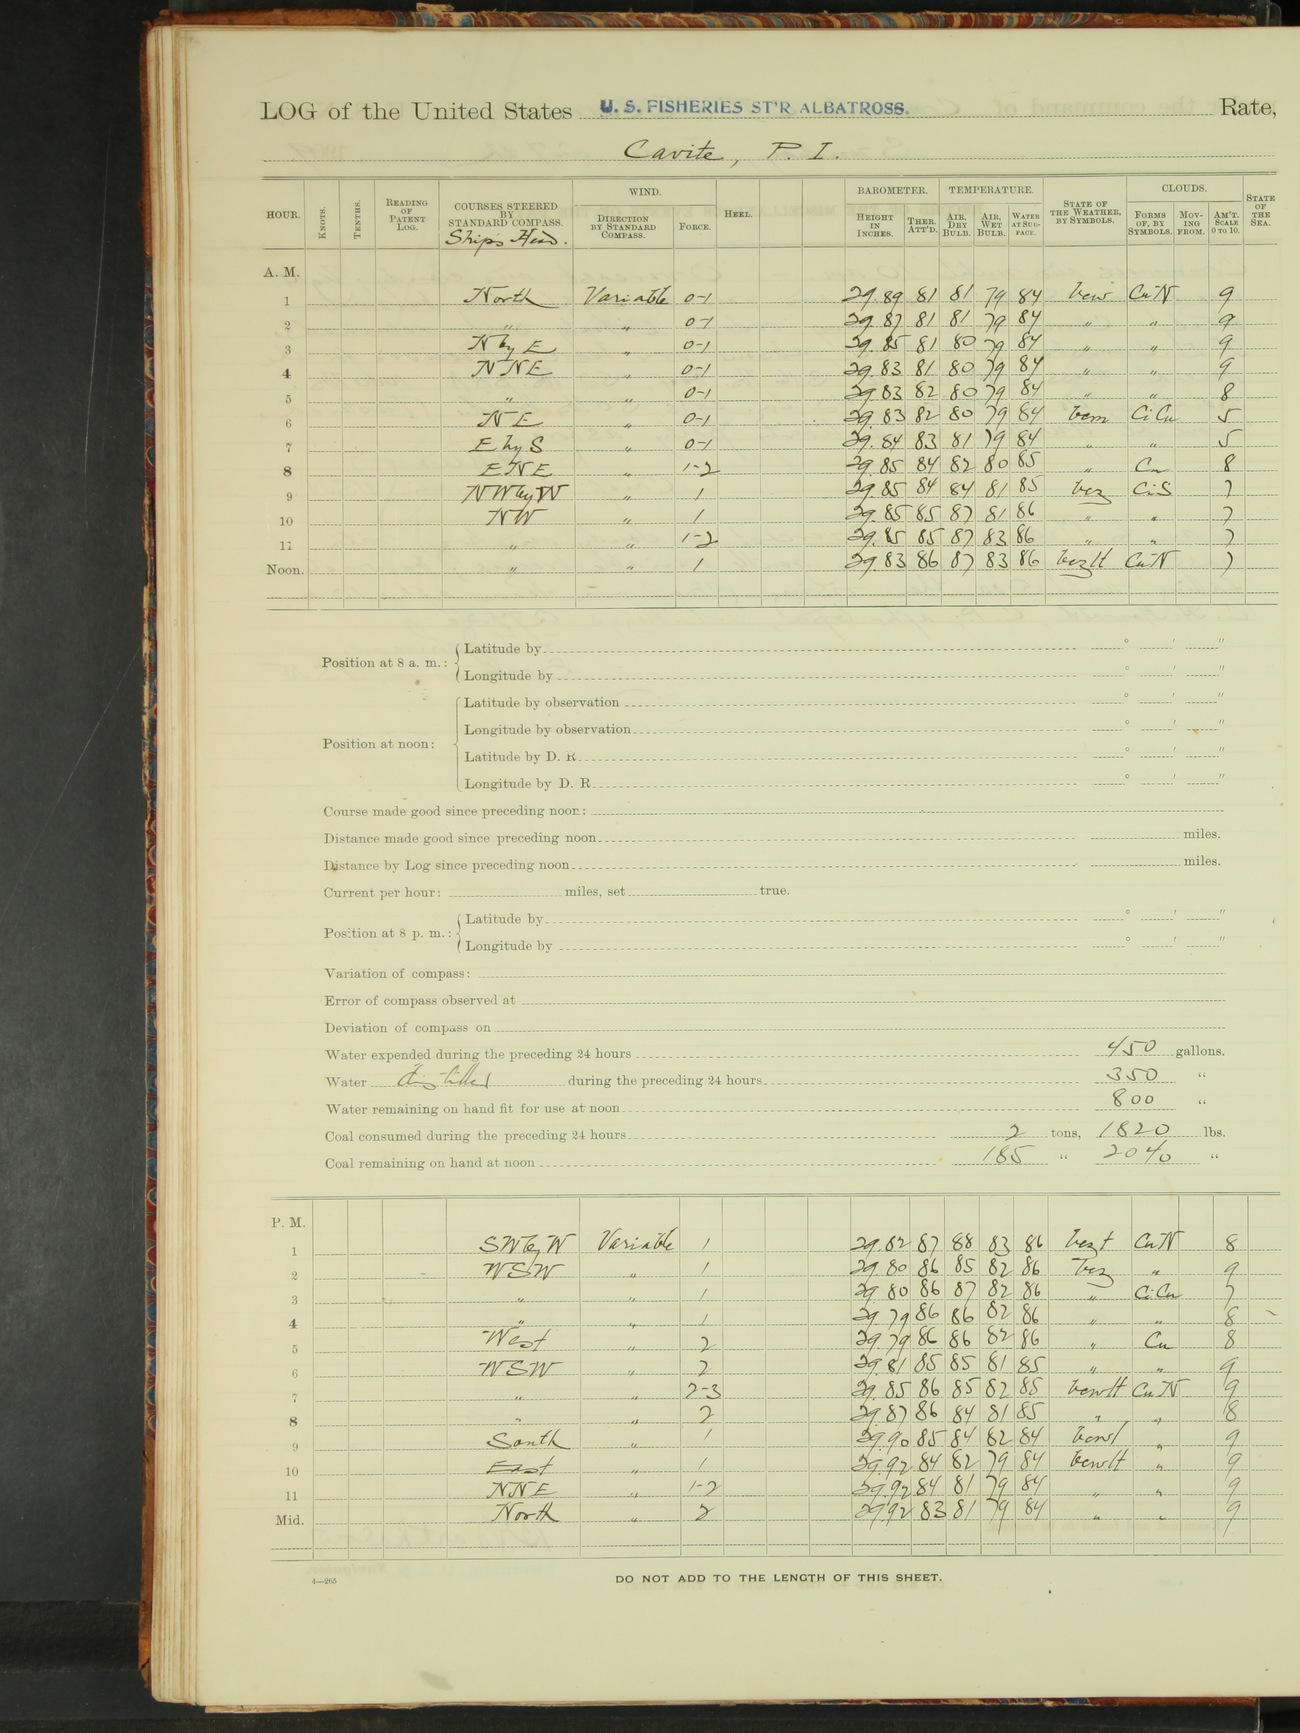 LOG of the United States U. S. FISHERIES ST'R ALBATROSS. Rate,
Cavite, P. I.
HOUR. KNOTS. TENTHS. READING OF PATENT LOG. COURSES STEERED BY STANDARD COMPASS. Ship's Head. WIND. DIRECTION BY STANDARD COMPASS. FORCE. HEEL. BAROMETER. HEIGHT IN INCHES. THER. ATT'D. TEMPERATURE. AIR, DRY BULB. AIR, WET BULB. WATER AT SURFACE. STATE OF THE WEATHER, BY SYMBOLS. CLOUDS. FORMS OF, BY SYMBOLS. MOVING FROM. AM'T. SCALE 0 TO 10. STATE OF THE SEA.
A. M.
1 North Variable 0-1 29.89 81 81 79 84 Cu N 9
2 " " 0-1 29.87 81 81 79 84 " " 9
3 N by E " 0-1 29.85 81 80 79 84 " " 9
4 NNE " 0-1 29.83 81 80 79 84 " " 9
5 " " 0-1 29.83 82 80 79 84 " " 8
6 NE " 0-1 29.83 82 80 79 84 bcm Ci Cu 5
7 E by S " 0-1 29.84 83 81 79 84 " " 5
8 ENE " 1-2 29.85 84 82 80 85 " Cu 8
9 NW by W " 1 29.85 84 84 81 85 bcz Ci S 7
10 NW " 1 29.85 85 87 81 86 " " 7
11 " " 1-2 29.85 85 87 83 86 " " 7
Noon. " " 1 29.83 86 87 83 86 Cu N 7
Position at 8 a. m.: Latitude by ° ' "
Longitude by ° ' "
Position at noon: Latitude by observation ° ' "
Longitude by observation ° ' "
Latitude by D. R. ° ' "
Longitude by D. R. ° ' "
Course made good since preceding noon:
Distance made good since preceding noon miles.
Distance by Log since preceding noon miles.
Current per hour: miles, set true.
Position at 8 p. m.: Latitude by ° ' "
Longitude by ° ' "
Variation of compass:
Error of compass observed at
Deviation of compass on
Water expended during the preceding 24 hours 450 gallons.
Water distilled during the preceding 24 hours 350 "
Water remaining on hand fit for use at noon 800 "
Coal consumed during the preceding 24 hours 2 tons, 1820 lbs.
Coal remaining on hand at noon 185 " 2040 "
P. M.
1 SW by W Variable 1 29.82 87 88 83 86 Cu N 8
2 WSW " 1 29.80 86 85 82 86 bcz " 9
3 " " 1 29.80 86 87 82 86 " Ci Cu 7
4 " " 1 29.79 86 86 82 86 " " 8
5 West " 2 29.79 86 86 82 86 " Cu 8
6 WSW " 2 29.81 85 85 81 85 " " 9
7 " " 2-3 29.85 86 85 82 85 Cu N 9
8 " " 2 29.87 86 84 81 85 " " 8
9 South " 1 29.90 85 84 82 84 " 9
10 East " 1 29.92 84 82 79 84 " 9
11 NNE " 1-2 29.92 84 81 79 84 " " 9
Mid. North " 2 29.92 83 81 79 84 " " 9
4—265
DO NOT ADD TO THE LENGTH OF THIS SHEET.